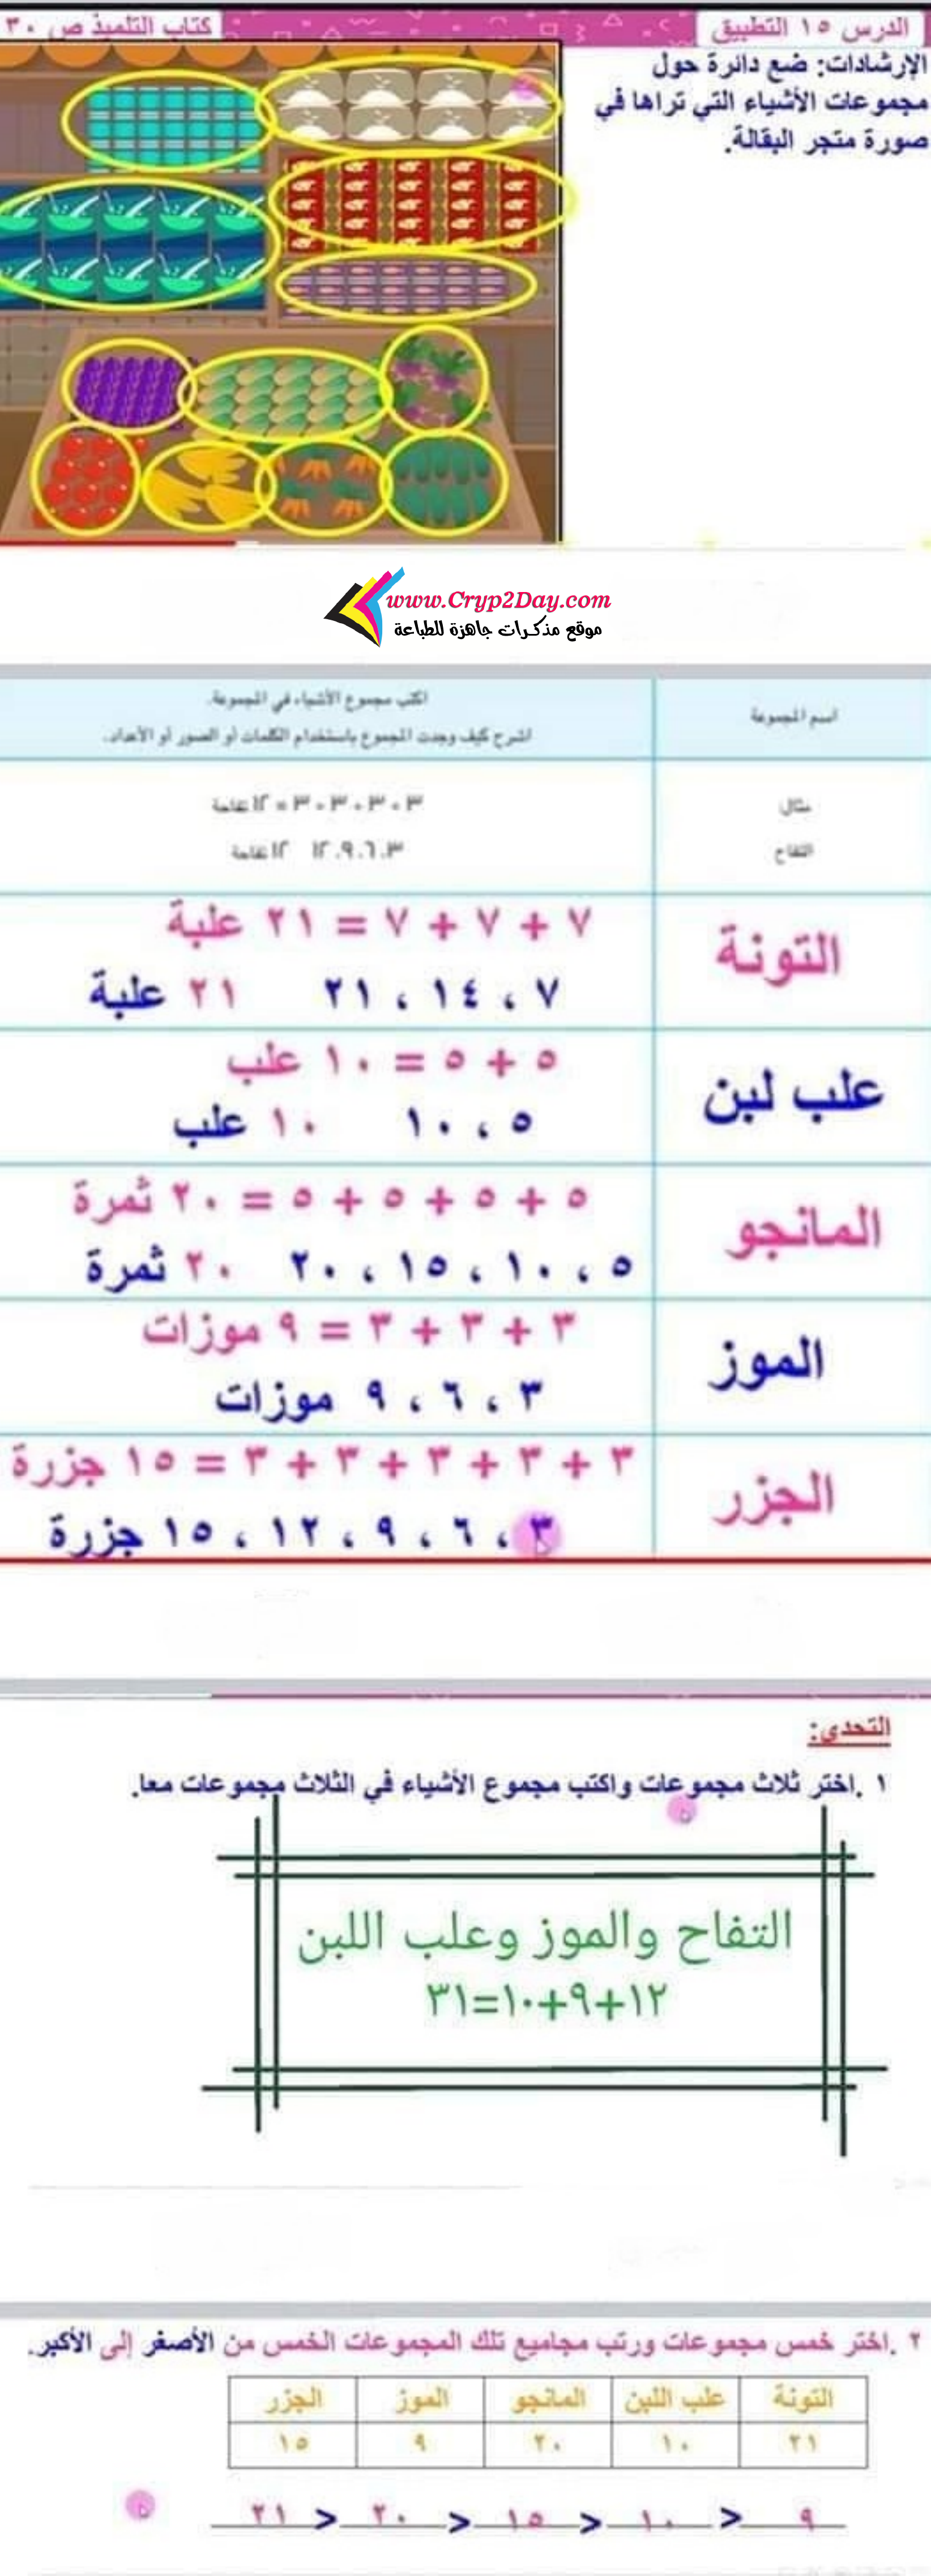 الدرس ١٥ التطبيق
كتاب التلميذ ص ٣٠
الإرشادات: ضع دائرة حول
مجموعات الأشياء التي تراها في
صورة متجر البقالة.
www.Cryp2Day.com
موقع مذكرات جاهزة للطباعة
اسم المجموعة
اكتب مجموع الأشياء في المجموعة.
اشرح كيف وجدت المجموع باستخدام الكلمات أو الصور أو الأعداد.
مثال
التفاح
٣ + ٣ + ٣ + ٣ = ١٢ تفاحة
٣، ٦، ٩، ١٢ ١٢ تفاحة
التونة
٧ + ٧ + ٧ = ٢١ علبة
٧ ، ١٤ ، ٢١ ٢١ علبة
علب لبن
٥ + ٥ = ١٠ علب
٥ ، ١٠ ١٠ علب
المانجو
٥ + ٥ + ٥ + ٥ = ٢٠ ثمرة
٥ ، ١٠ ، ١٥ ، ٢٠ ٢٠ ثمرة
الموز
٣ + ٣ + ٣ = ٩ موزات
٣ ، ٦ ، ٩ موزات
الجزر
٣ + ٣ + ٣ + ٣ + ٣ = ١٥ جزرة
٣ ، ٦ ، ٩ ، ١٢ ، ١٥ جزرة
التحدي:
١ .اختر ثلاث مجموعات واكتب مجموع الأشياء في الثلاث مجموعات معا.
التفاح والموز وعلب اللبن
١٢+٩+١٠=٣١
٢ .اختر خمس مجموعات ورتب مجاميع تلك المجموعات الخمس من الأصغر إلى الأكبر.
التونة علب اللبن المانجو الموز الجزر
٢١ ١٠ ٢٠ ٩ ١٥
٩ > ١٠ > ١٥ > ٢٠ > ٢١